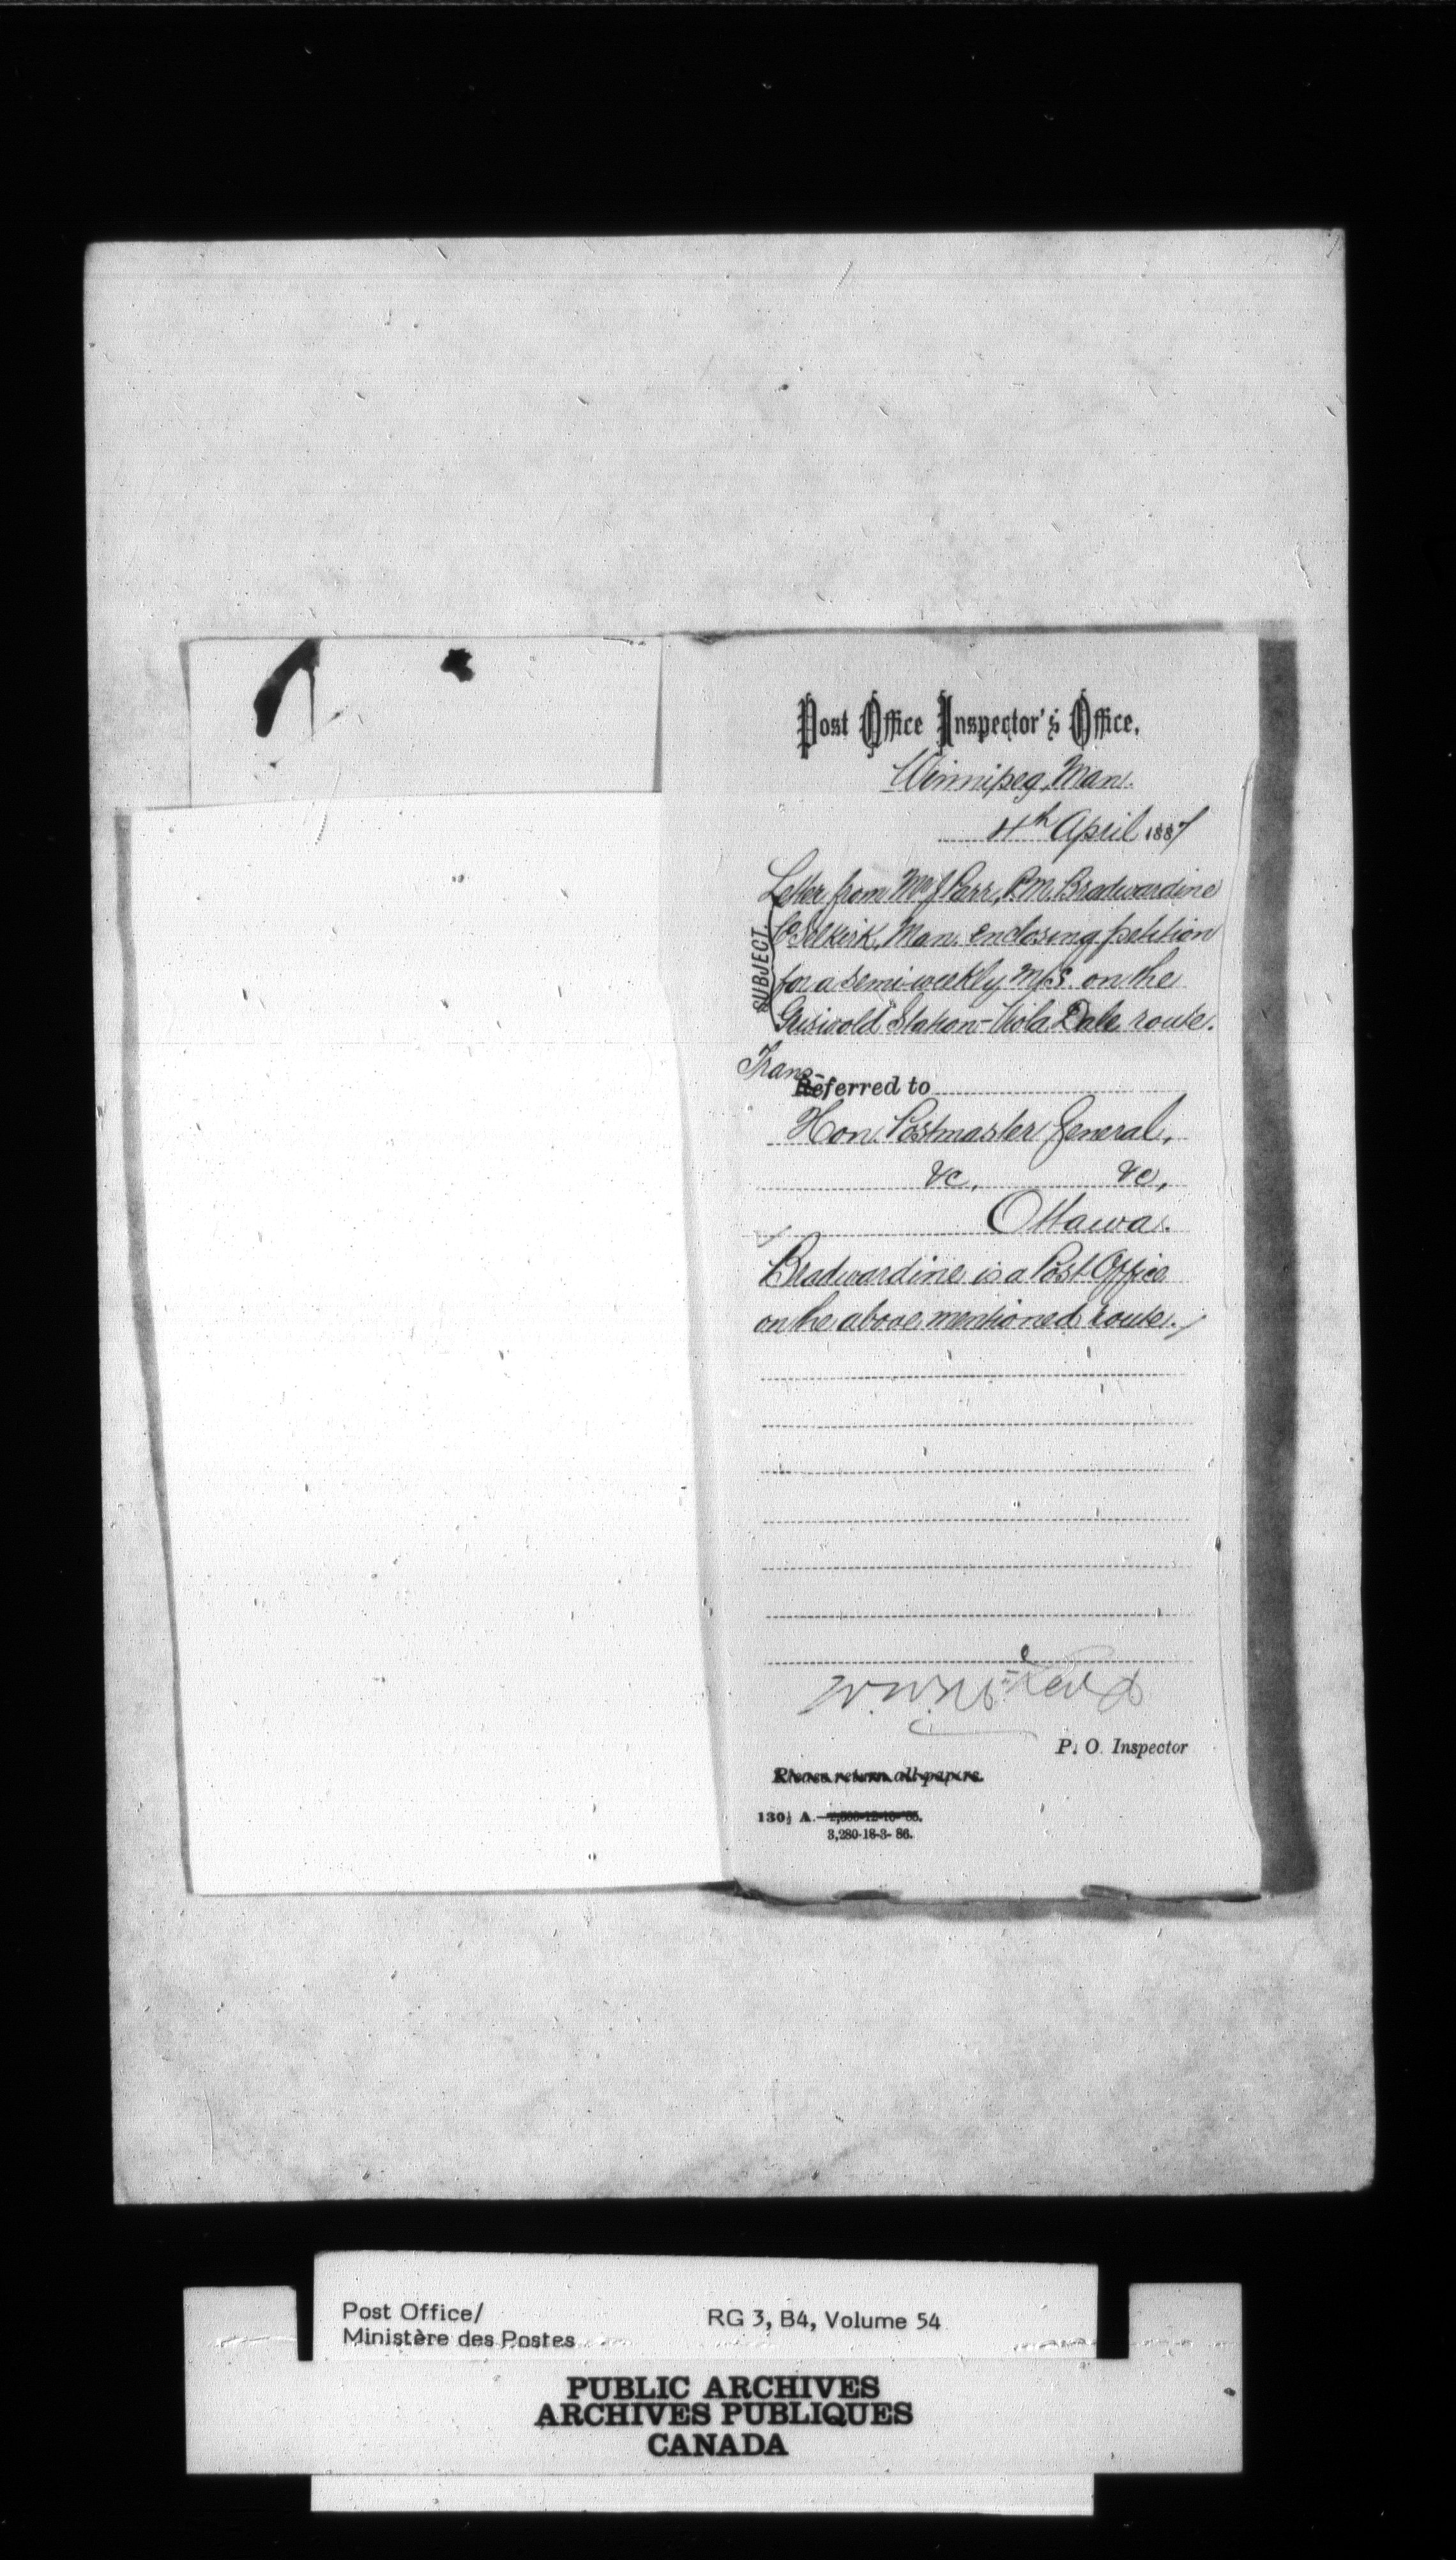 Post Office Inspector's Office,
Winnipeg, Man.
4th April 1887
SUBJECT.
Letter from Mr J Parr, P.M. Bradwardine
Co Selkirk, Man. enclosing petition
for a semi-weekly M/S. on the
Griswold Station-Viola Dale route.
Trans-
Referred to
Hon. Postmaster General,
&c, &c,
Ottawa.
Bradwardine is a Post Office
on the above mentioned route.
W. W. McLeod
P. O. Inspector
Please return all papers.
130½ A.
3,280-18-3- 86.
Post Office/
Ministère des Postes
RG 3, B4, Volume 54
PUBLIC ARCHIVES
ARCHIVES PUBLIQUES
CANADA